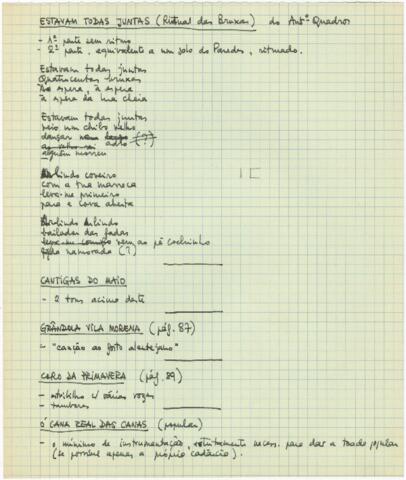 ESTAVAM TODAS JUNTAS (Ritual das Bruxas) do Antº Quadros
- 1ª parte sem ritmo
- 2ª parte, equivalente a um solo do Paredes, ritmado.
Estavam todas juntas
Quatrocentas bruxas
À espera, à espera
à espera da lua cheia
Estavam todas juntas
veio um chibo velho
dançar no adro (?)
alguém morreu
Arlindo coveiro
com a tua marreca
leva-me primeiro
para a cova aberta
Arlindo Arlindo
bailador das fadas
vem ao pé coxinho
namorada (?)
CANTIGAS DO MAIO
- 2 tons acima deste
GRÂNDOLA VILA MORENA (pág. 87)
- "canção ao gosto alentejano"
CORO DA PRIMAVERA (pág. 89)
- estribilho c/ várias vozes
- tambores
Ó CANA REAL DAS CANAS (popular)
- o mínimo de instrumentação, estritamente necess. para dar a toada popular
(se possível apenas a própria cadência).